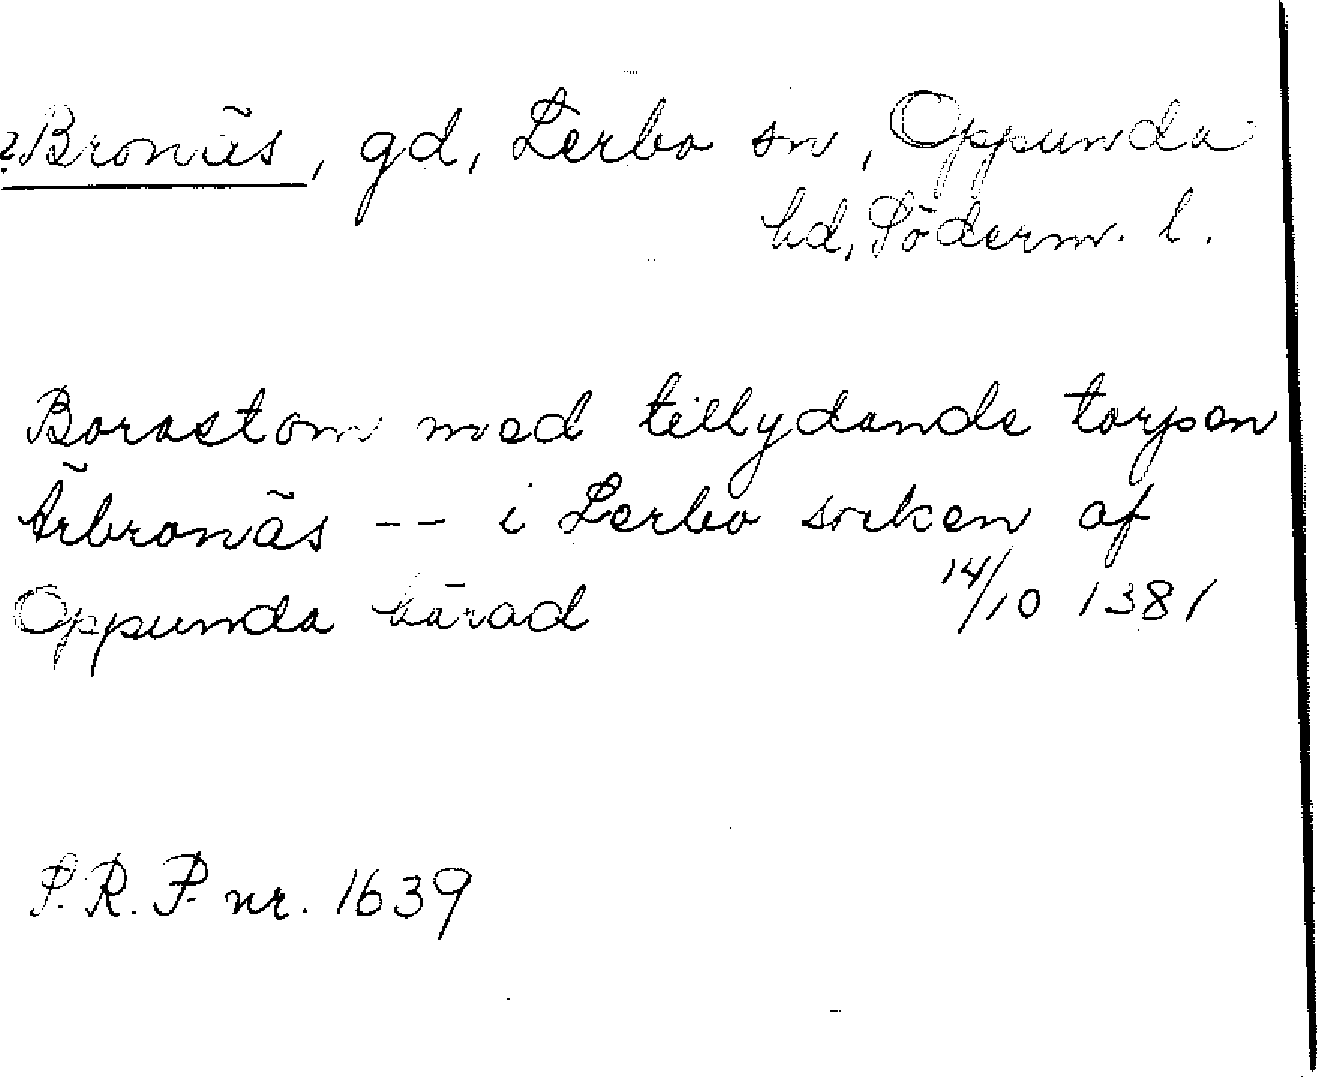 ?Bronäs, gd, Lerbo sn, Oppunda
hd, Söderm. l.
Borastom med tillydande torpen
Ärbronäs -- i Lerbo sorken af
Oppunda härad 14/10 1381
P.R.P. nr. 1639